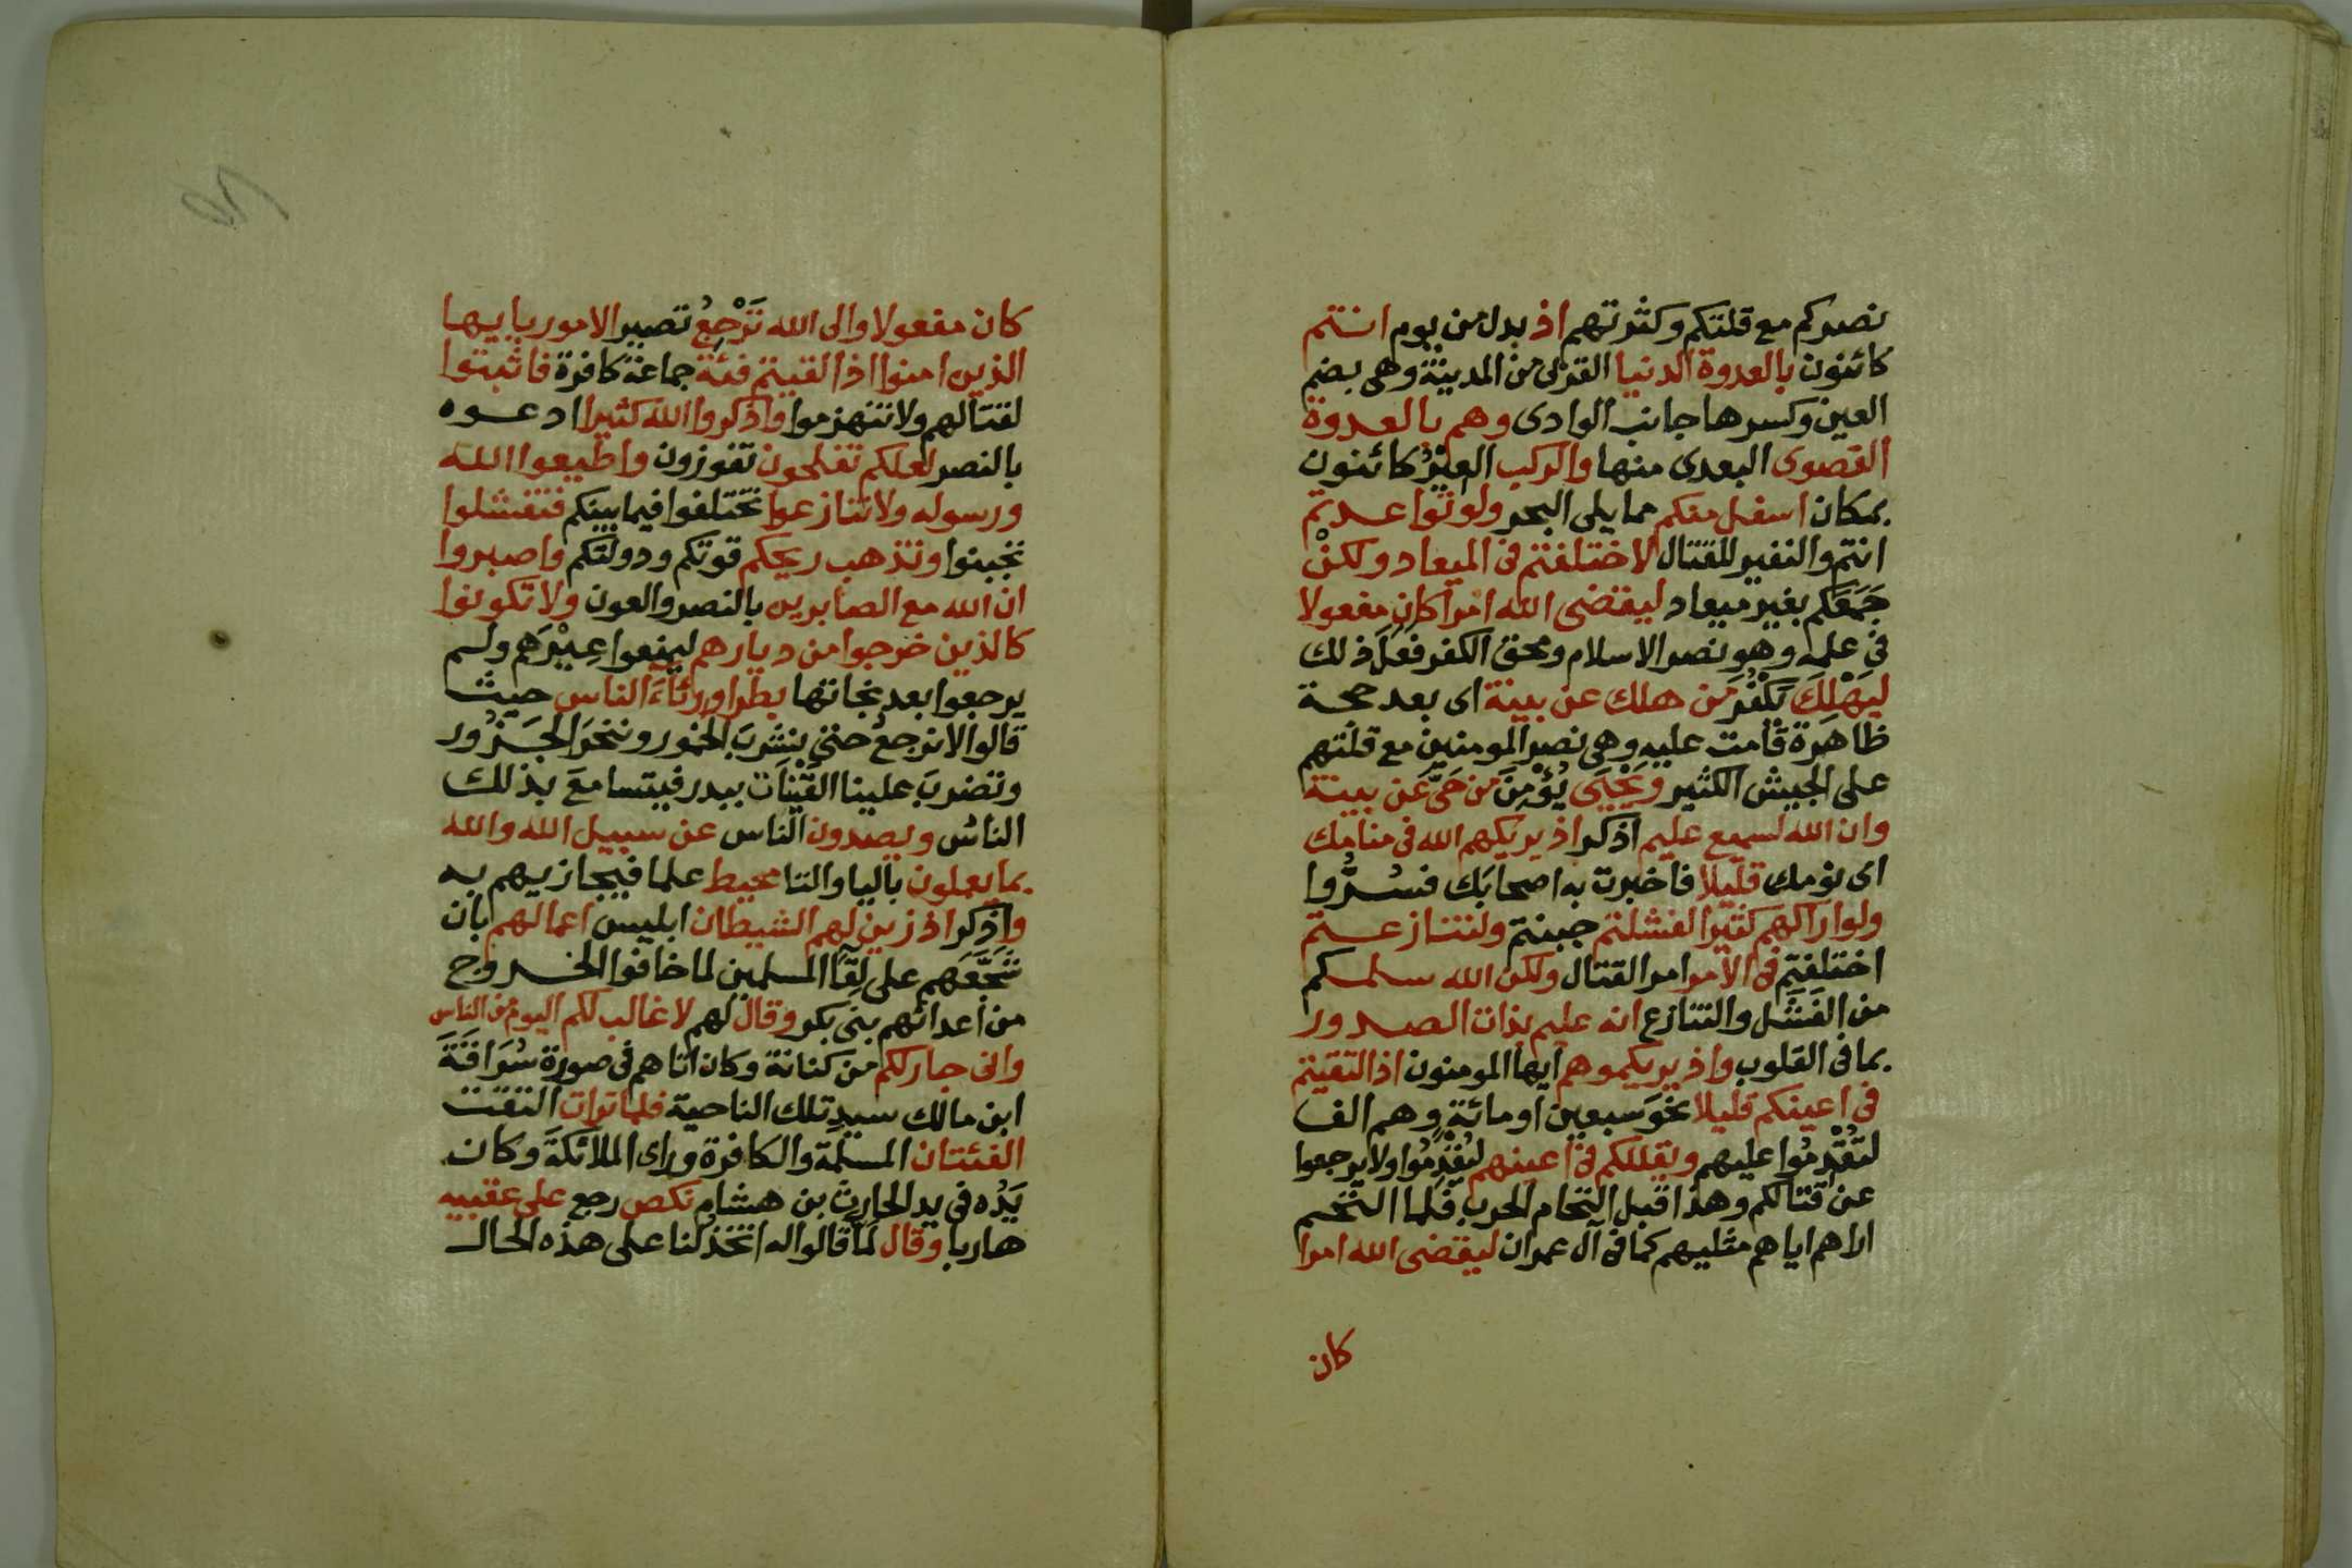 نصركم مع قلتكم وكثرتهم اذ بدل من يوم انتم
كائنون بالعدوة الدنيا القربى من المدينة وهى بضم
العين وكسرها جانب الوادى وهم بالعدوة
القصوى البعدى منها والركب العِيْرُ كائنون
بمكان اسفل منكم مما يلى البحر ولو تواعدتم
انتم والنفير للقتال لاختلفتم فى الميعاد ولكنْ
جَمَعَكم بغير ميعاد ليقضى الله امرا كان مفعولا
فى علمه وهو نصر الاسلام ومحق الكفر فَعَلَ ذلك
ليَهْلِكَ يَكْفُرَ مَن هلك عن بينة اى بعد حجة
ظاهرة قامت عليه وهى نصر المومنين مع قلتهم
على الجيش الكثير ويَحْيَى يُؤمِنَ مَن حَىَّ عَن بينة
وان الله لسميع عليم اذكر اذ يريكهم الله فى منامك
اى نومك قليلا فاخبرت به اصحابَك فسُرُّوا
ولو اراكهم كثيرا لفشلتم جبنتم ولتنازعتم
اختلفتم فى الامر امر القتال ولكن الله سلمكم
من الفَشَل والتنازع انه عليم بذات الصدور
بما فى القلوب واذ يريكموهم ايها المومنون اذ التقيتم
فى اعينكم قليلا نحوَ سبعين او مائةٍ وهم الف
لتُقْدِمُوا عليهم ويقللكم فى اعينهم ليُقْدِمُوا ولا يرجعوا
عن قتالكم وهذا قبل التحام الحرب فلما التحم
اراهم اياهم مثليهم كما فى آل عمران ليقضى الله امرا
كان
كان مفعولا والى الله تَرْجِعُ تصير الامور يا ايها
الذين امنوا اذا لقيتم فئة جماعة كافرة فاثبتوا
لقتالهم ولا تنهزموا واذكروا الله كثيرا ادعوه
بالنصر لعلكم تفلحون تفوزون واطيعوا الله
ورسوله ولا تنازعوا تختلفوا فيما بينكم فتفشلوا
تجبنوا وتذهب ريحكم قوتكم ودولتكم واصبروا
ان الله مع الصابرين بالنصر والعون ولا تكونوا
كالذين خرجوا من ديارهم ليمنعوا عِيْرَهم ولم
يرجعوا بعد نجاتها بطرا ورئاءَ الناس حيث
قالوا لا نرجعُ حتى نشربَ الخمور وننحَرَ الجَزُور
وتضربَ علينا القَيْنَات ببدر فيتسامعَ بذلك
الناسُ ويصدون الناس عن سبيل الله والله
بما يعملون باليا والتا محيط علما فيجازيهم به
واذكر اذ زين لهم الشيطان ابليس اعمالهم بان
شَجَّعَهم على لِقَآ المسلمين لما خافوا الخروج
من اعدائهم بنى بكر وقال لهم لا غالب لكم اليوم من الناس
وانى جار لكم من كنانة وكان اتاهم فى صورة سُرَاقَةَ
ابن مالك سيدِ تلك الناحية فلما تراات التقت
الفئتان المسلمة والكافرة وراى الملائكةَ وكان
يَدُه فى يد الحارث بن هشام نكص رجع على عقبيه
هاربا وقال لَمَّا قالوا له اتخذلنا على هذه الحال